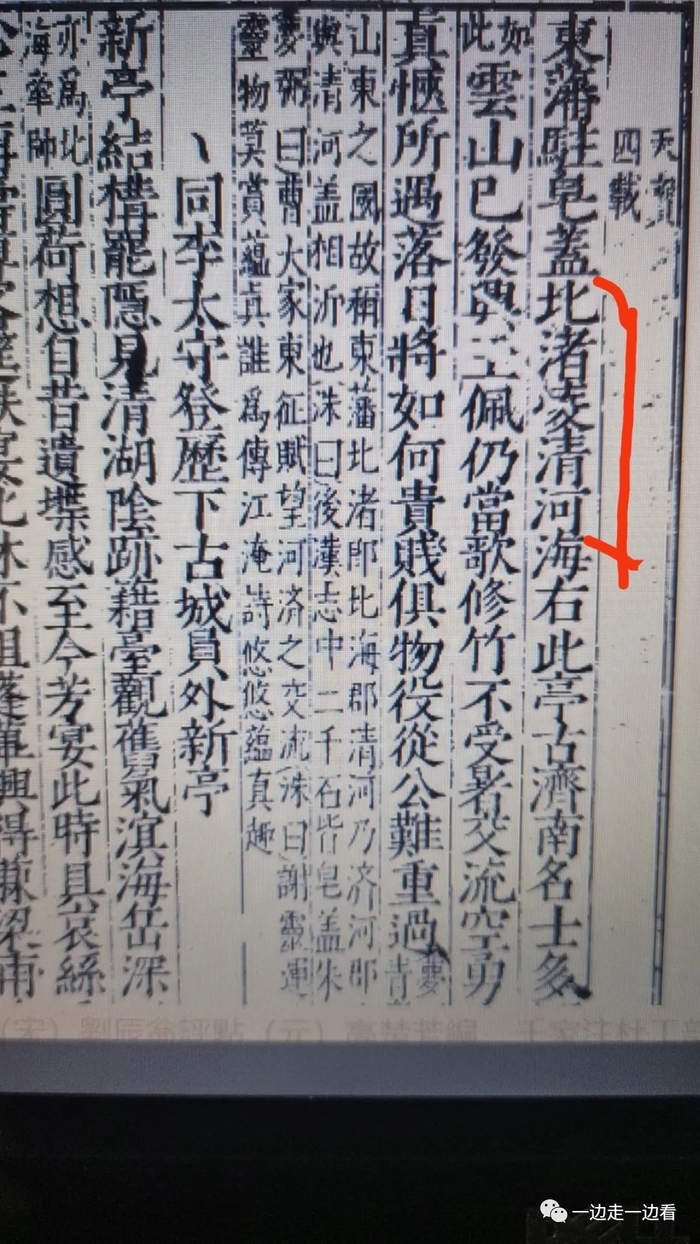 天寶
四載
東藩駐皂蓋北渚凌清河海右此亭古濟南名士多
如此雲山已發興玉佩仍當歌修竹不受暑交流空勇
真愜所遇落日將如何貴賤俱物役從公難重過夢青
山東之國故稱東藩北渚即北海郡清河乃济河郡
與清河蓋相沂也洙曰後漢志中二千石皆皂蓋朱
夢弼曰曹大家東征賦望河济之交流洙曰謝靈運
靈物莫賞蘊真誰爲傳江淹詩悠悠蘊真趣
同李太守登歷下古城員外新亭
新亭結構罷隱見清湖陰跡藉臺觀舊氣溟海岳深
亦爲北
海牽帥
圓荷想自昔遺堞感至今芳宴此時具哀絲
（宋）劉辰翁評點（元）高楚芳編 千家注杜工
一边走一边看